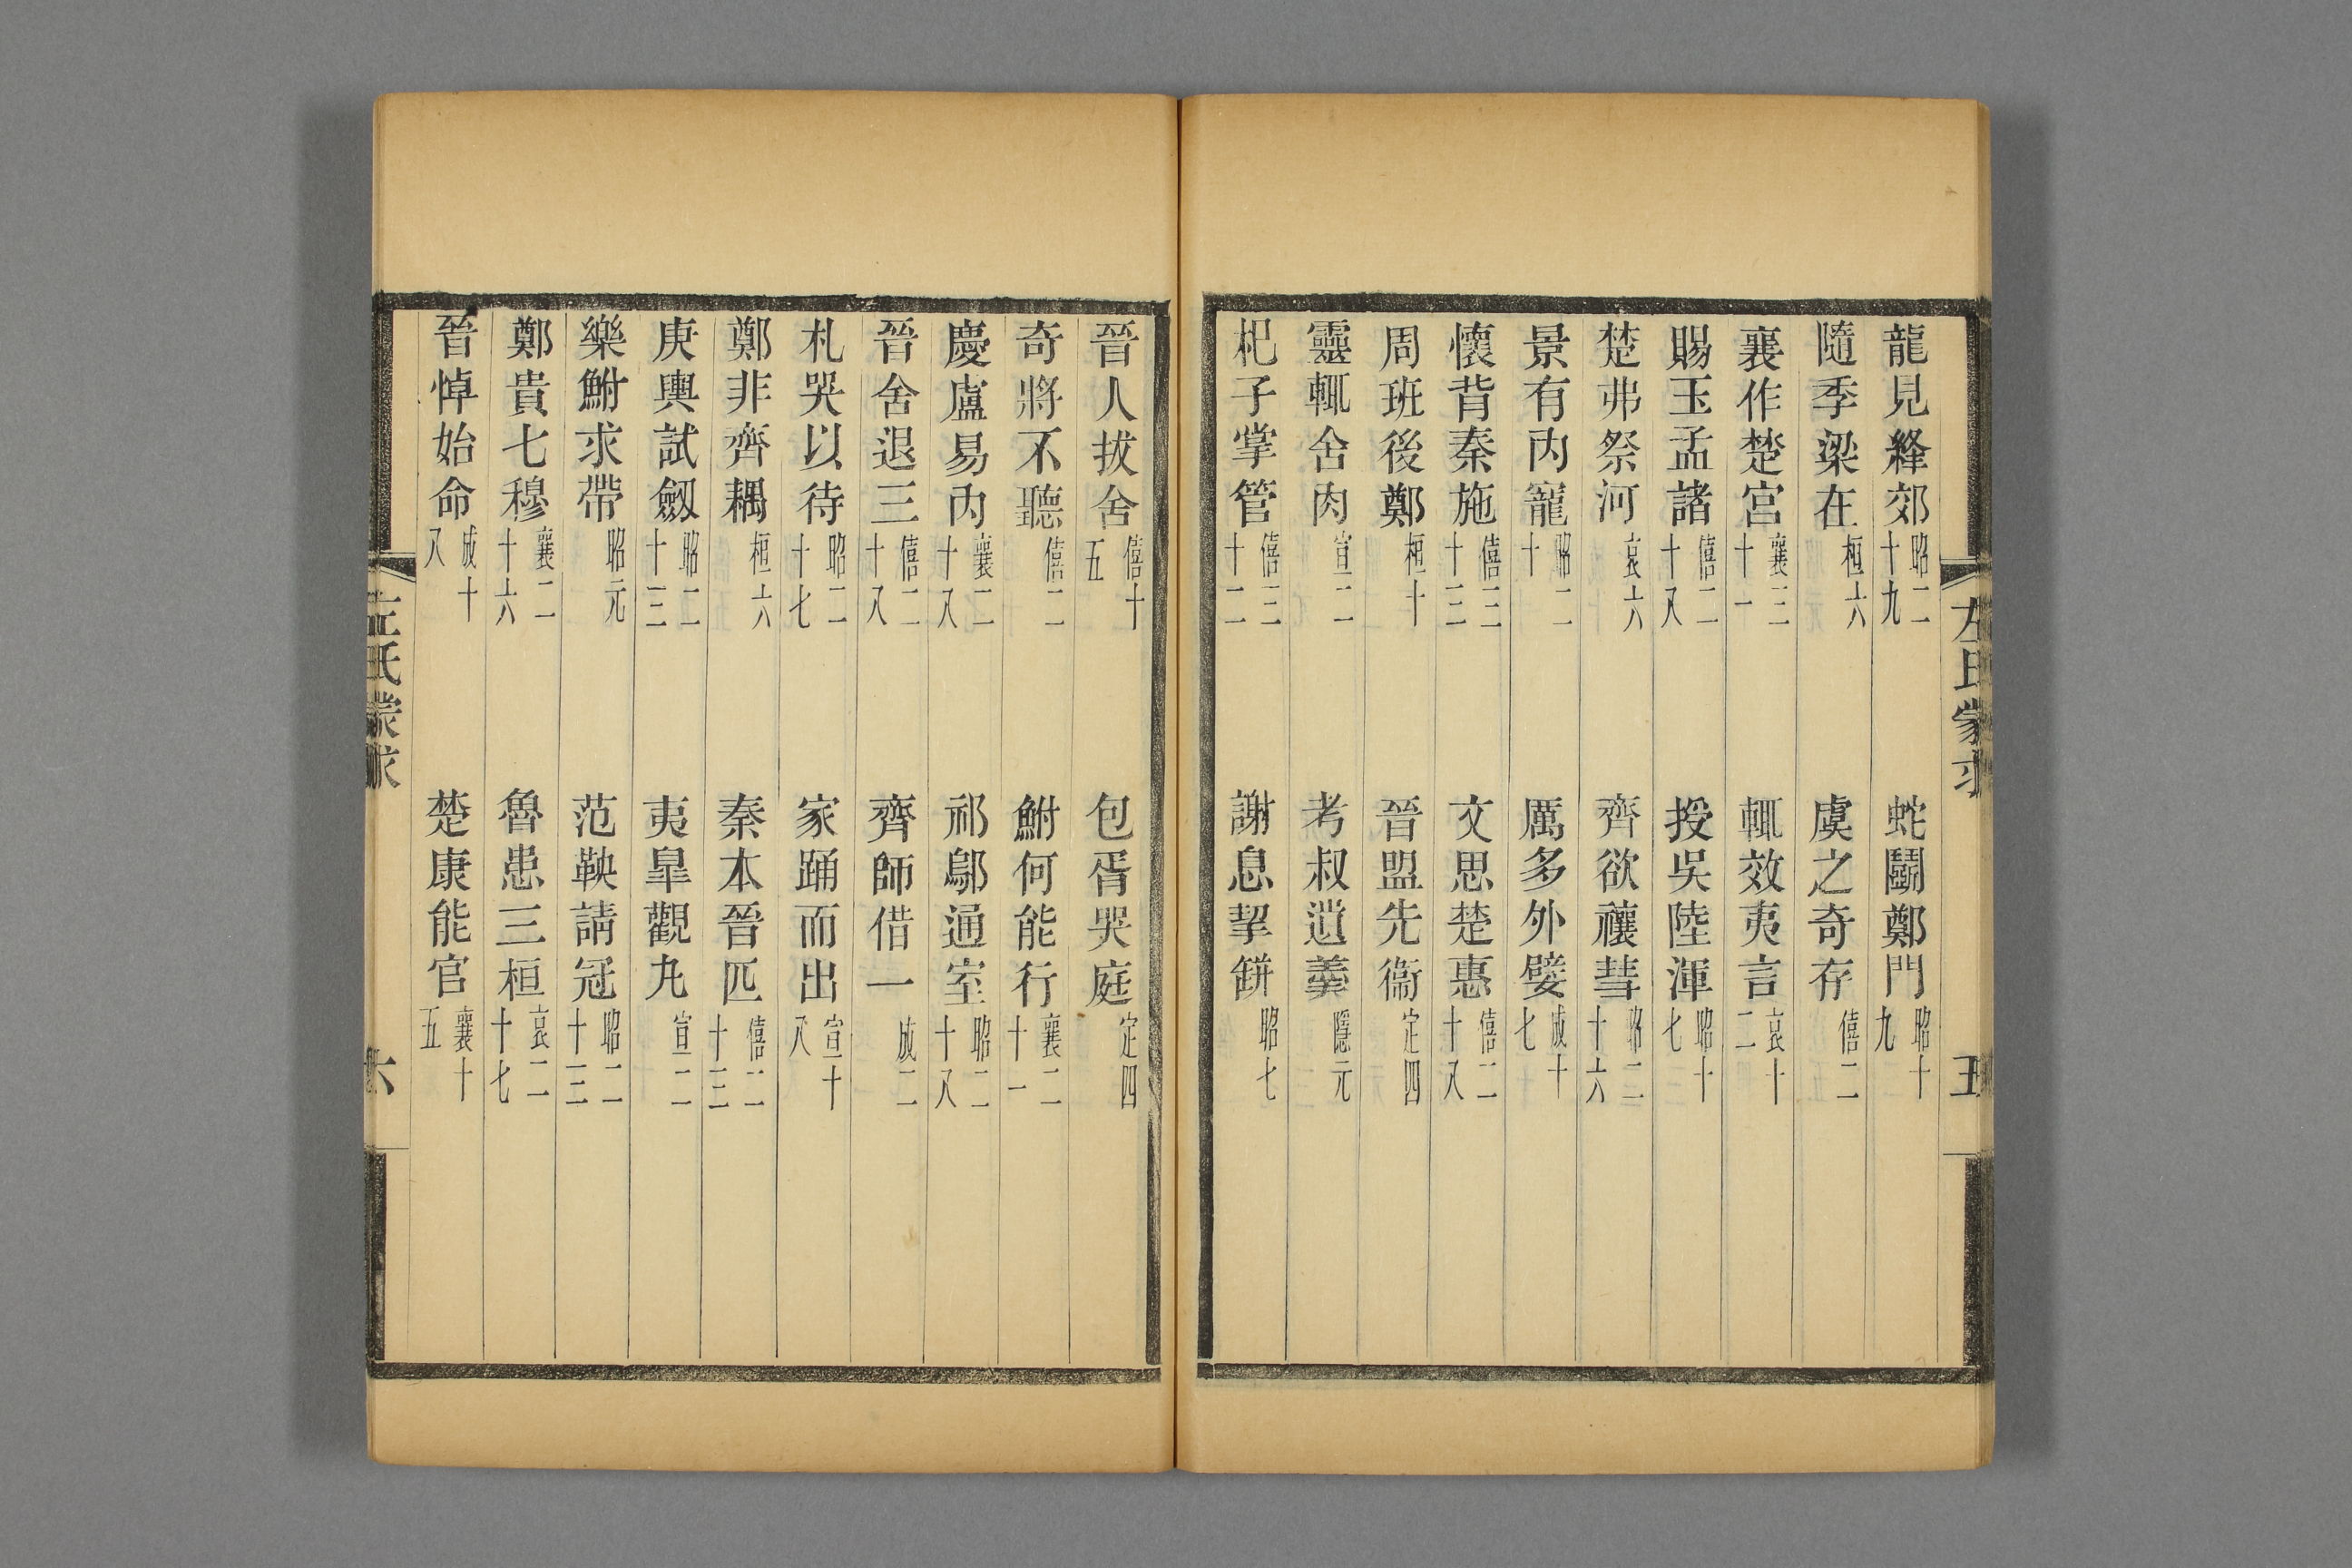 左氏蒙求 五
龍見絳郊昭二十九 蛇鬭鄭門昭十九
隨季梁在桓六 虞之奇存僖二
襄作楚宮襄三十一 輒效夷言哀十二
賜玉孟諸僖二十八 授吳陸渾昭十七
楚弗祭河哀六 齊欲禳彗昭二十六
景有內寵昭二十 厲多外嬖成十七
懷背秦施僖三十三 文思楚惠僖二十八
周班後鄭桓十 晉盟先衞定四
靈輒舍肉宣二 考叔遺羹隱元
杞子掌管僖三十二 謝息挈缾昭七
晉人拔舍僖十五 包胥哭庭定四
奇將不聽僖二 鮒何能行襄二十一
慶盧易內襄二十八 祁鄔通室昭二十八
晉舍退三僖二十八 齊師借一成二
札哭以待昭二十七 家踊而出宣十八
鄭非齊耦桓六 秦本晉匹僖二十三
庚輿試劔昭二十三 夷臯觀丸宣二
樂鮒求帶昭元 范鞅請冠昭二十三
鄭貴七穆襄二十六 魯患三桓哀二十七
晉悼始命成十八 楚康能官襄十五
左氏蒙求 六